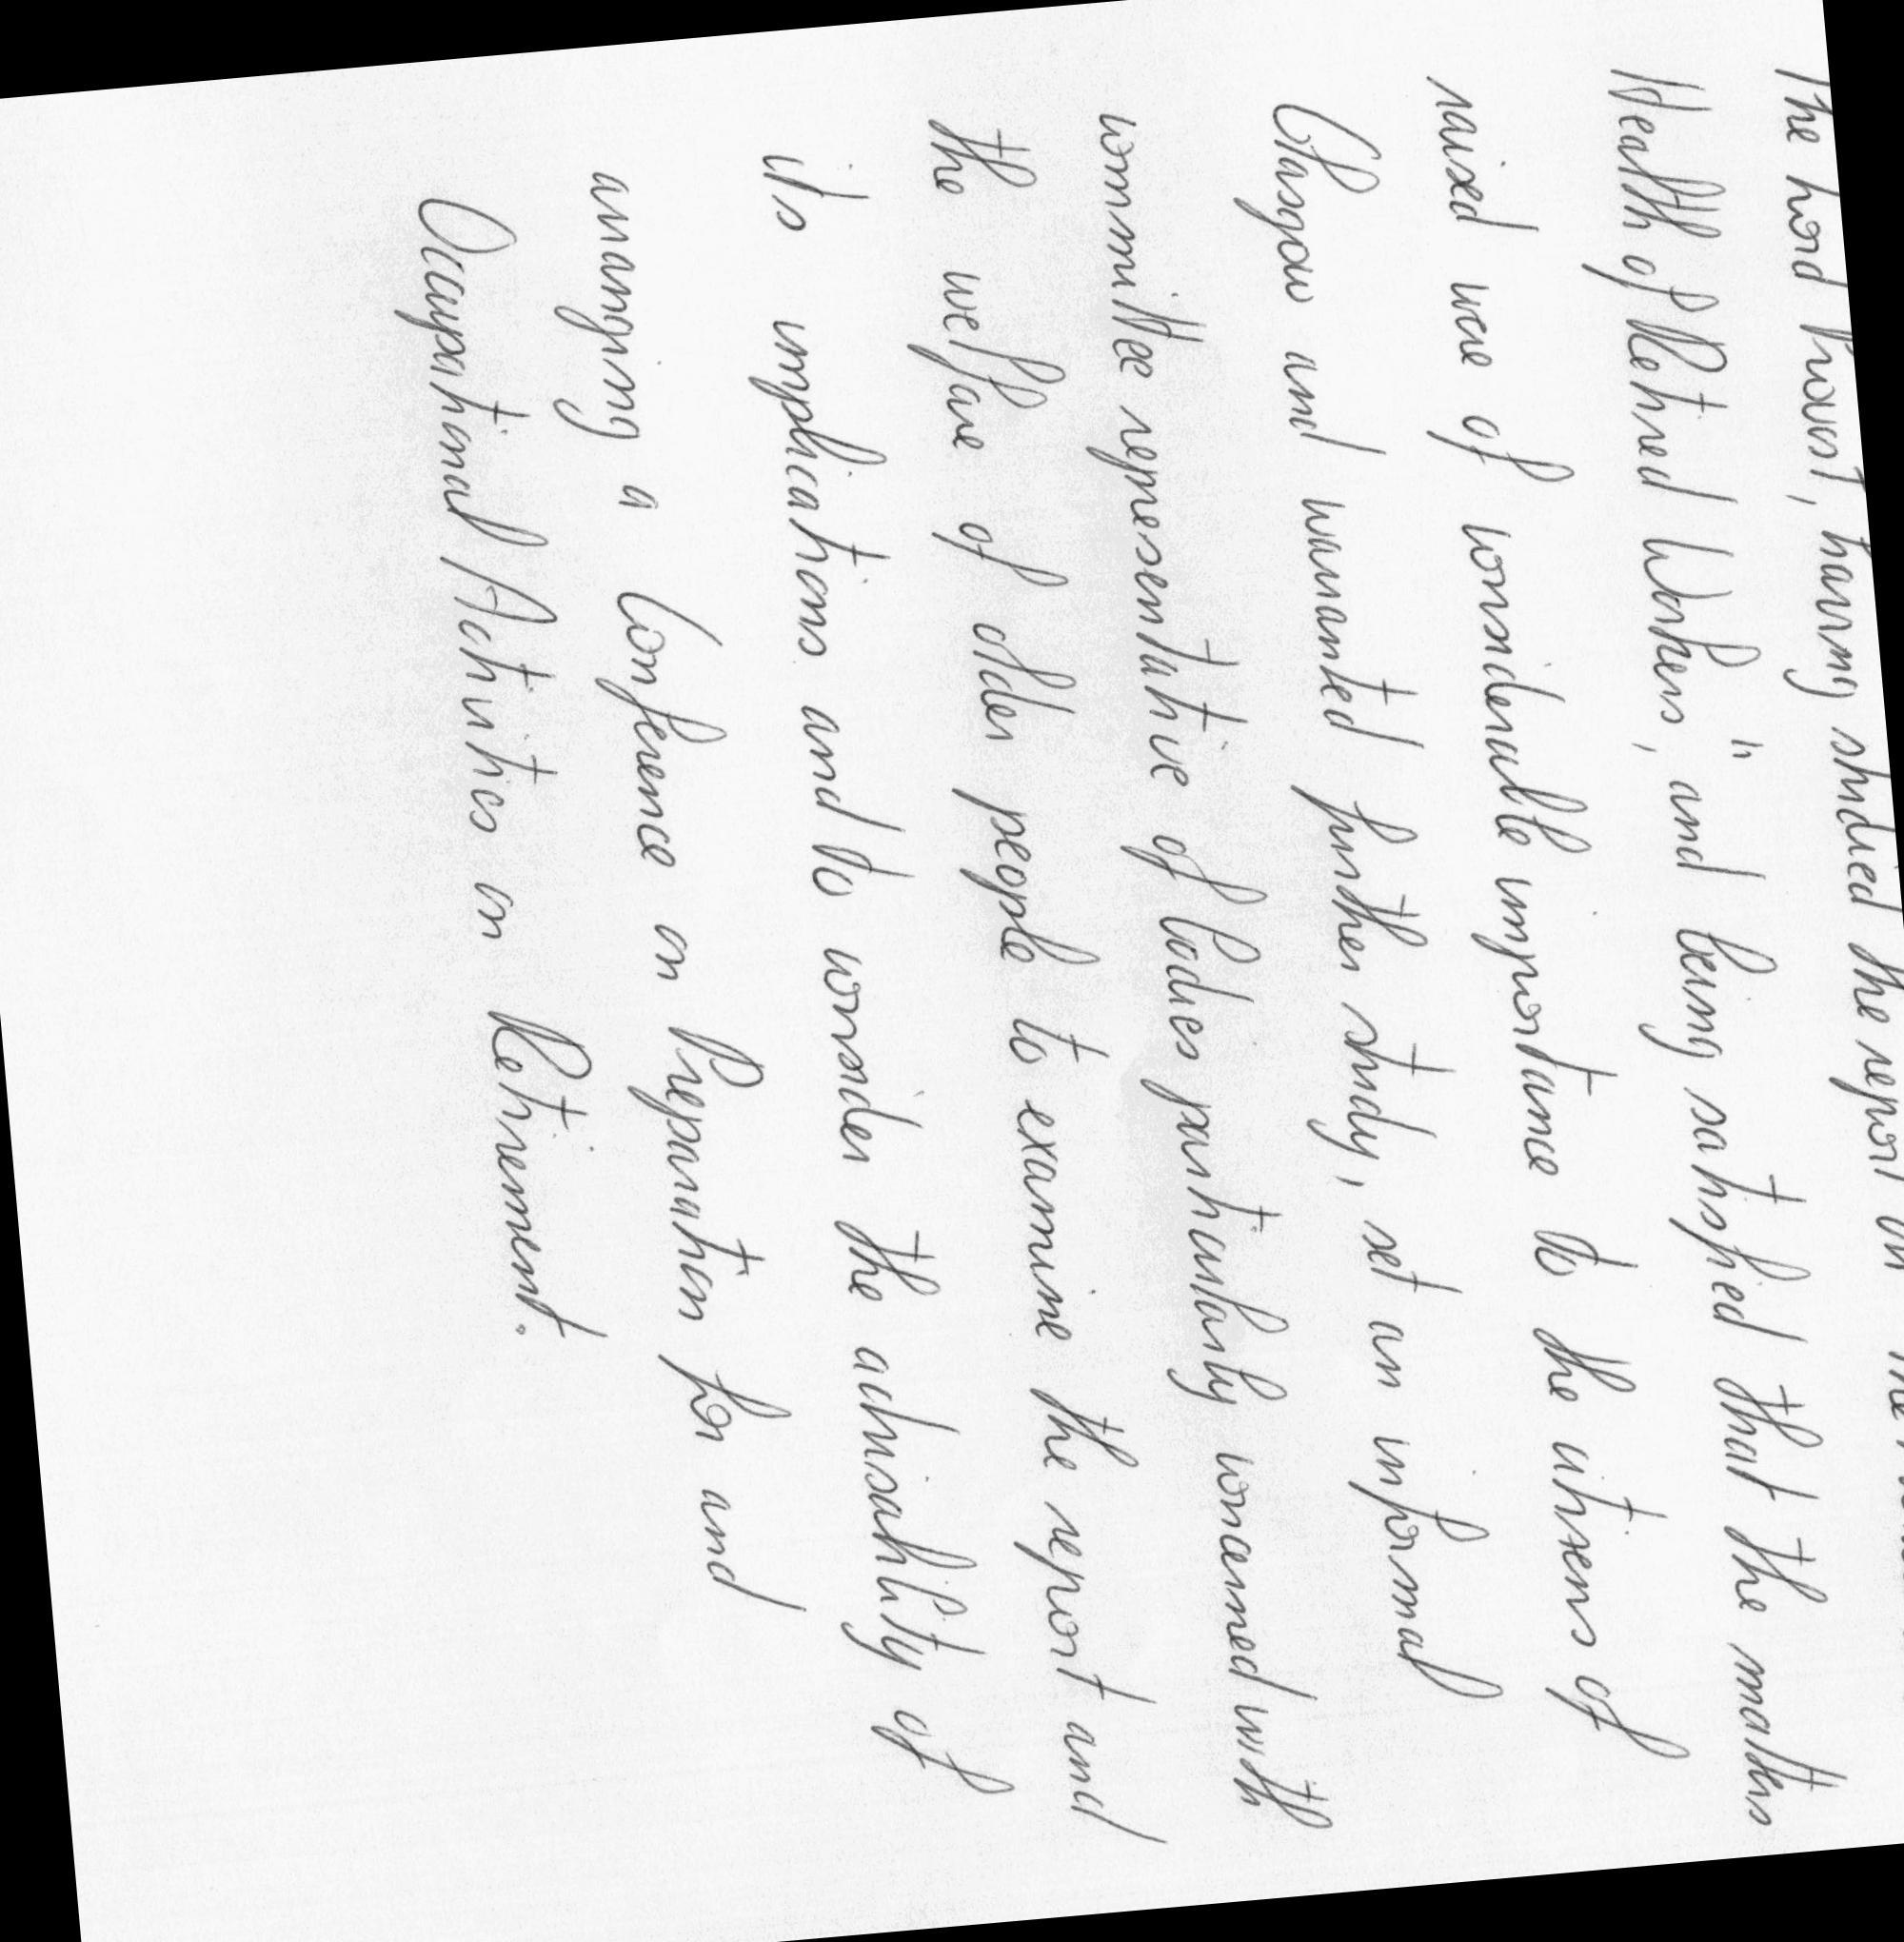 The Lord Provost, having studied the report on the
Health of Retired Workers," and being satisfied that the matters
raised were of considerable importance to the citizens of
Glasgow and warranted further study, set an informal
committee representative of bodies particularly concerned with
the welfare of older people to examine the report and
its implications and to consider the advisability of
arranging a Conference on Preparation for and
Occupational Activities on Retirement.